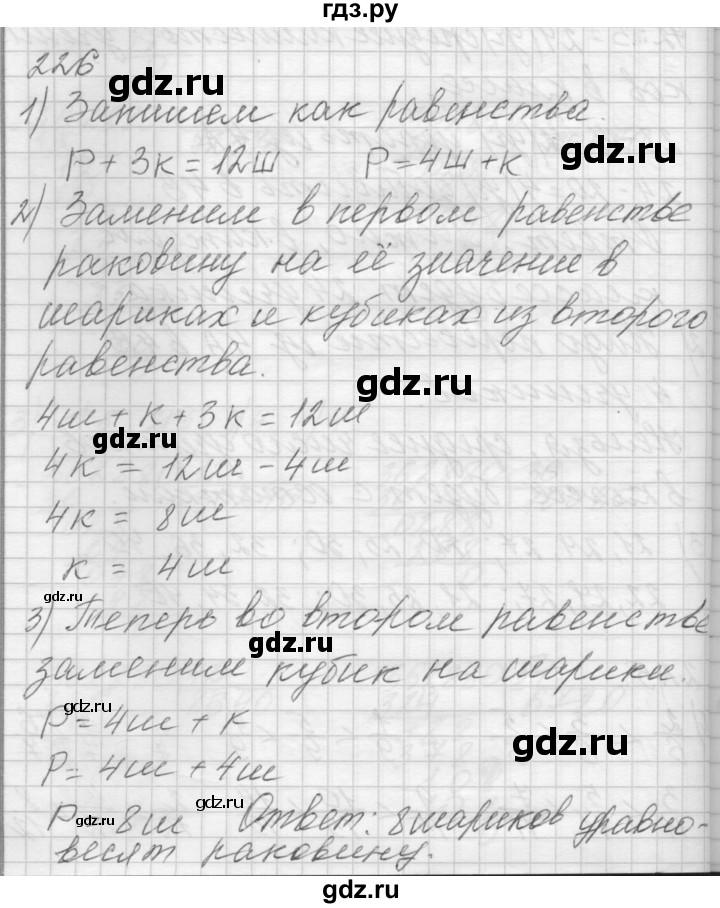 гдз.ру
226
gdz.ru
1) Запишем как равенства.
Р + 3к = 12ш Р = 4ш + к
gdz.ru
2) Заменим в первом равенстве
раковину на её значение в
шариках и кубиках из второго
равенства.
gdz.ru
4ш + к + 3к = 12ш
gdz.ru
4к = 12ш - 4ш
4к = 8ш
к = 4ш
gdz.ru
3) Теперь во втором равенстве
gdz.ru
заменим кубик на шарики.
gdz.ru
Р = 4ш + к
gdz.ru
Р = 4ш + 4ш
gdz.ru
gdz.ru
Р = 8ш Ответ: 8 шариков уравно-
весят раковину.
gdz.ru